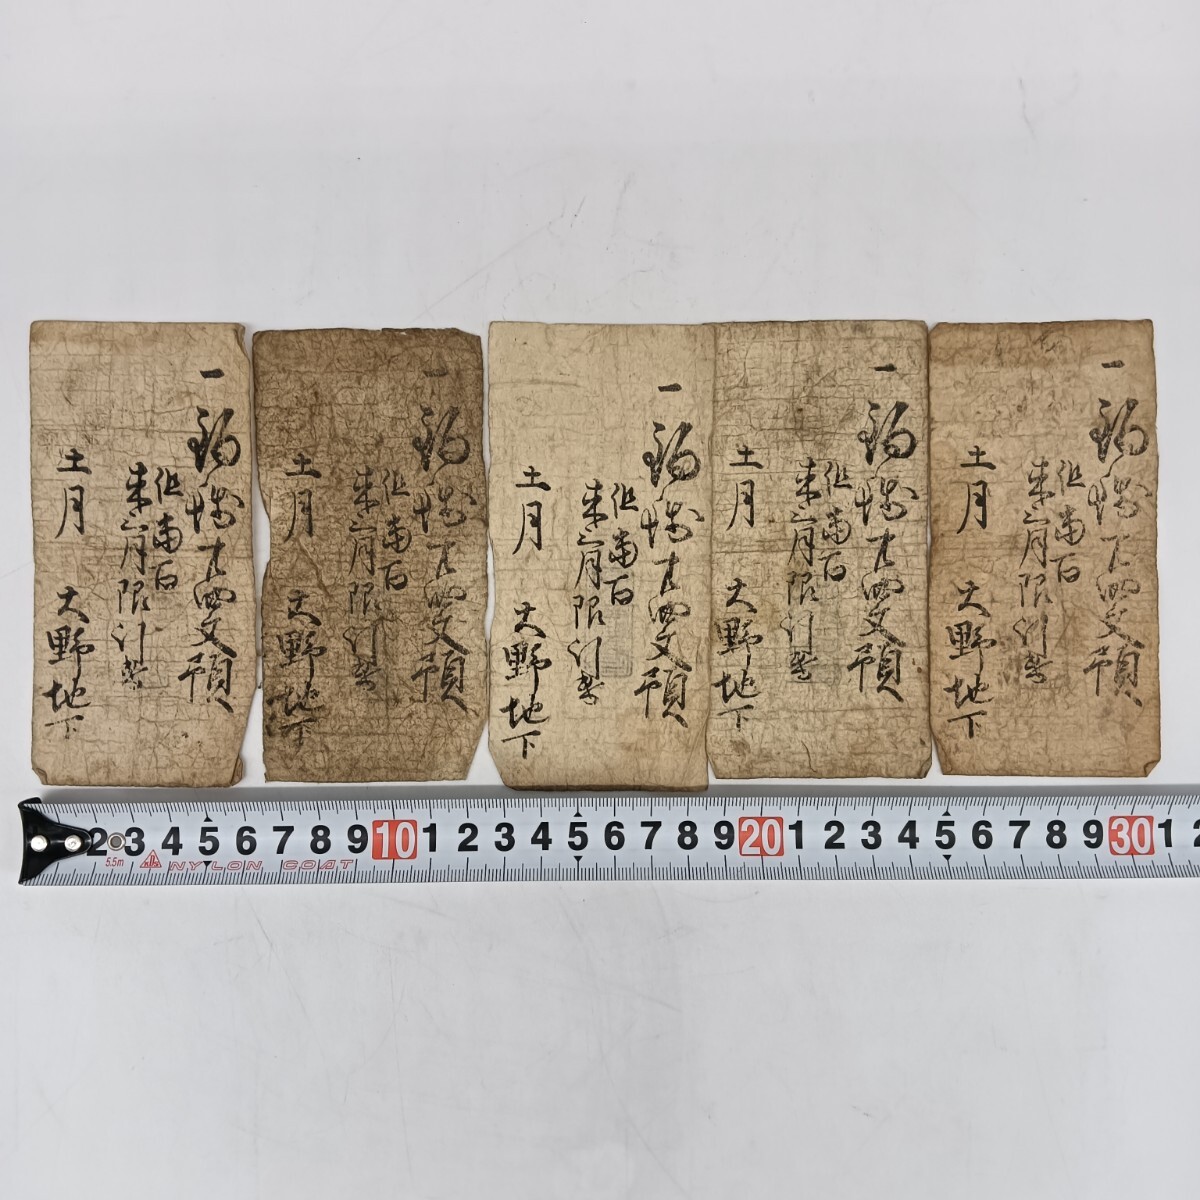 一 鍋銭廿四文預
但當百
来六月限引替
十一月
大野地下
一 鍋銭廿四文預
但當百
来六月限引替
十一月
大野地下
一 鍋銭廿四文預
但當百
来六月限引替
十一月
大野地下
一 鍋銭廿四文預
但當百
来六月限引替
十一月
大野地下
一 鍋銭廿四文預
但當百
来六月限引替
十一月
大野地下
2 3 4 5 6 7 8 9 10 1 2 3 4 5 6 7 8 9 20 1 2 3 4 5 6 7 8 9 30 1 2
5.5m NYLON COAT